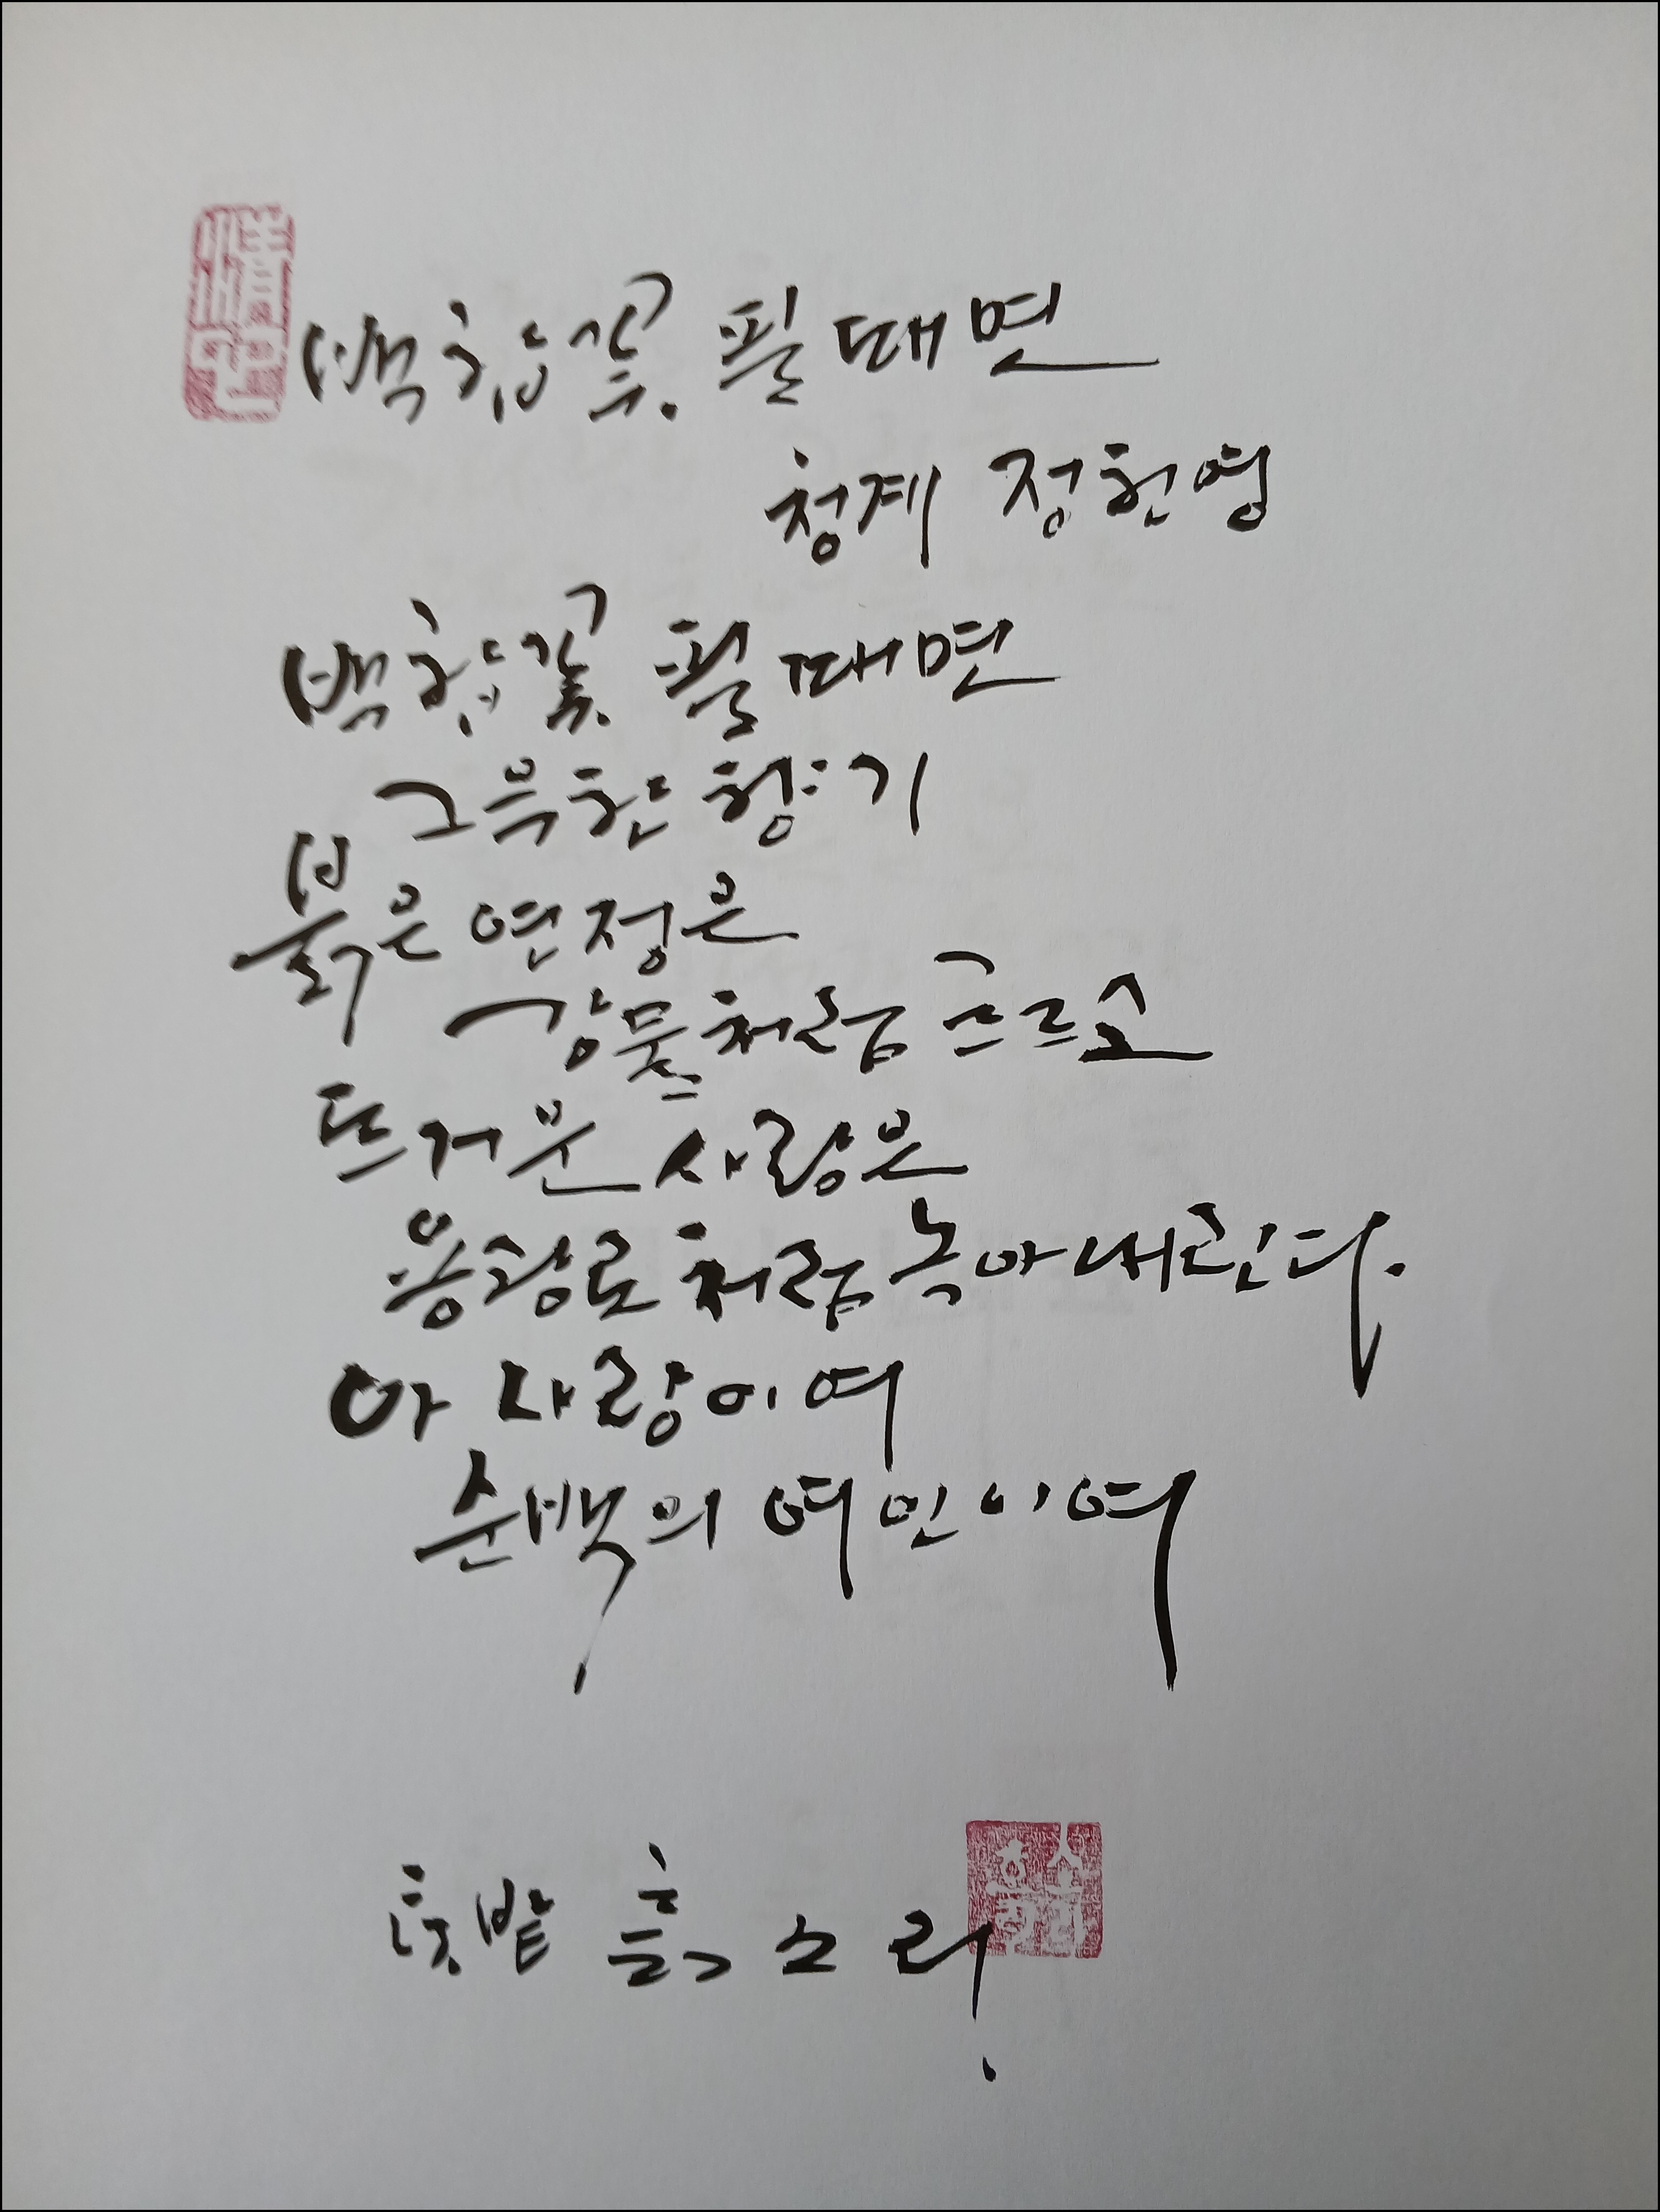 백합꽃 필 때면
청계 정헌영
백합꽃 필 때면
그윽한 향기
붉은 연정은
강물처럼 흐르고
뜨거운 사랑은
용광로처럼 녹아내린다.
아 사랑이여
순백의 여인이여
흙소리